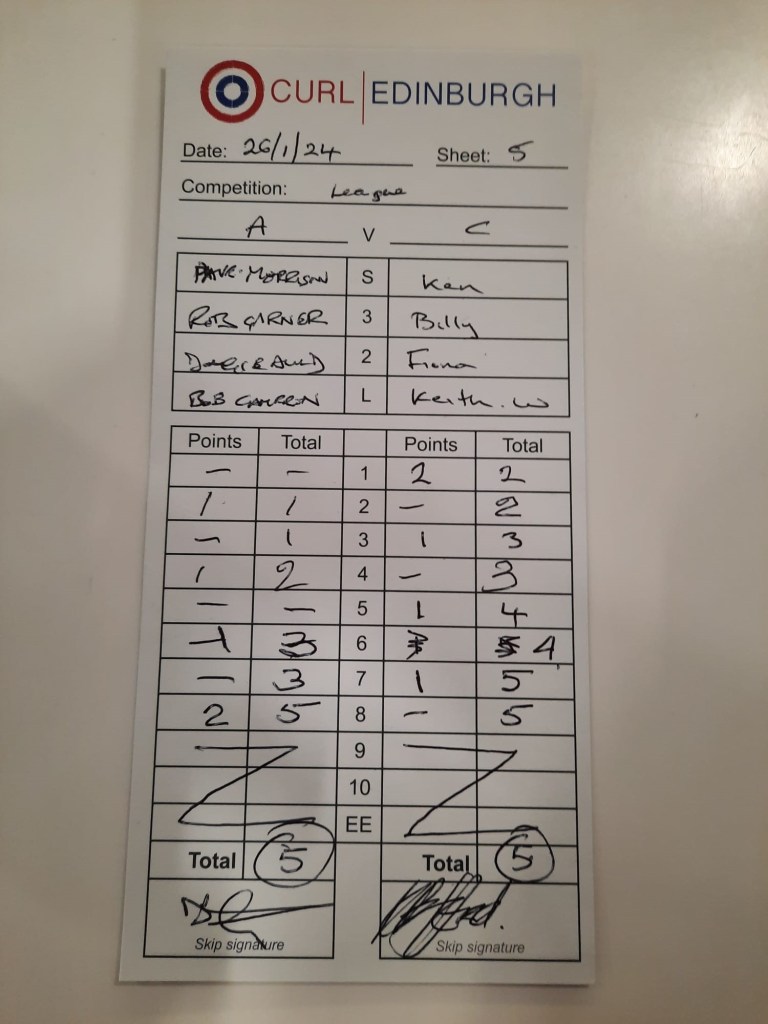 CURL | EDINBURGH
Date: 26/1/24 Sheet: 5
Competition: League
A V C
DAVE MORRISON S Ken
ROB GARNER 3 Billy
2 Fiona
BOB L Keith. W
Points Total Points Total
– – 1 2 2
1 1 2 – 2
– 1 3 1 3
1 2 4 – 3
– – 5 1 4
1 3 6 4
– 3 7 1 5
2 5 8 – 5
9
10
EE
Total 5 Total 5
Skip signature Skip signature